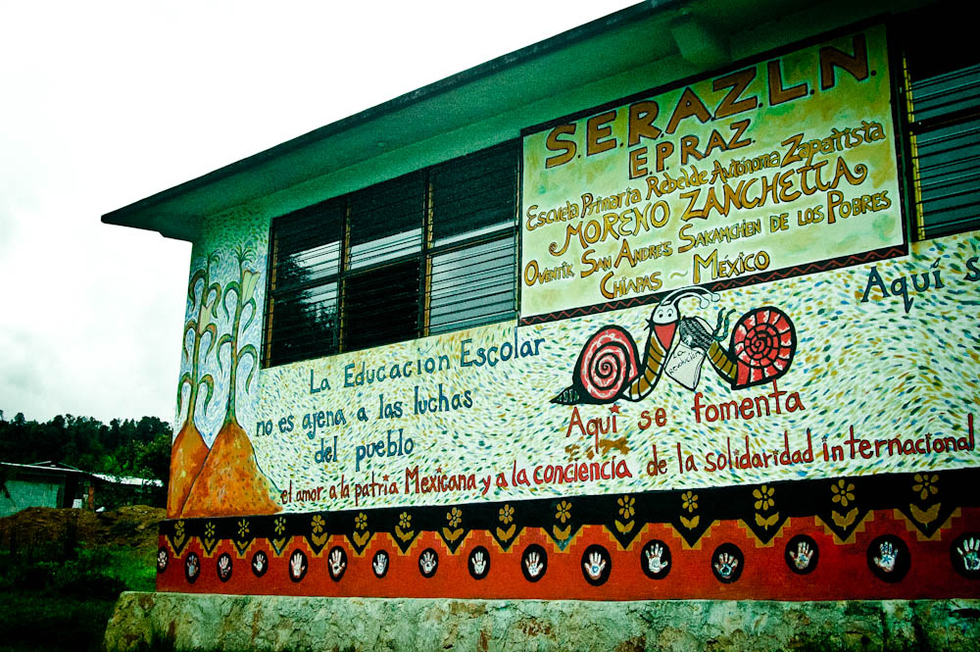 S.E.R.A.Z.L.N.
E.P.R.A.Z.
Escuela Primaria Rebelde Autónoma Zapatista
MORENO ZANCHETTA
OVENTIK SAN ANDRES SAKAMCHEN DE LOS POBRES
CHIAPAS ~ MÉXICO
Aquí s
La Educación Escolar
no es ajena a las luchas
del pueblo
Aqui se fomenta
el amor a la patria Mexicana y a la conciencia de la solidaridad internacional
LA